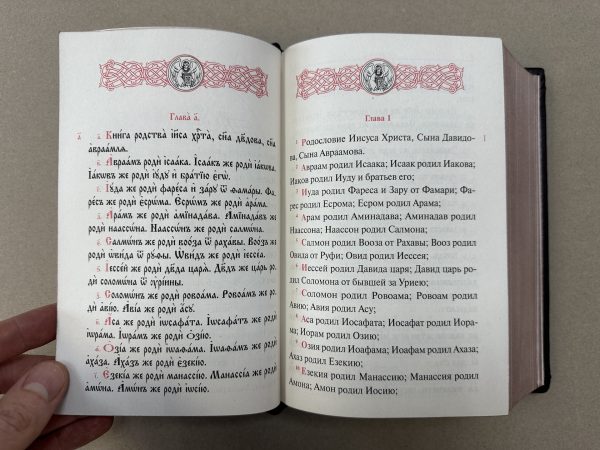 Глава̀ а҃.
а҃
а҃ Кни́га родства̀ і҆и҃са хр҇та̀, сн҃а дв҃дова, сн҃а
а҆враа́мля.
в҃ А҆враа́мъ родѝ і҆саа́ка. І҆саа́къ же родѝ і҆а́кѡва.
І҆а́кѡвъ же родѝ і҆ꙋ́дꙋ и҆ бра́тїю є҆гѡ̀.
г҃ І҆ꙋ́да же родѝ фаре́са и҆ за́рꙋ ѿ ѳама́ры. Фа-
ре́съ же родѝ є҆срѡ́ма. Є҆срѡ́мъ же родѝ а҆ра́ма.
д҃ А҆ра́мъ же родѝ а҆мїнада́ва. А҆мїнада́въ же
родѝ наассѡ́на. Наассѡ́нъ же родѝ салмѡ́на.
є҃ Салмѡ́нъ же родѝ воо́за ѿ раха́вы. Воо́зъ же
родѝ ѡ҆ви́да ѿ рꙋ́ѳы. Ѡ҆ви́дъ же родѝ і҆ессе́а.
ѕ҃ І҆ессе́й же родѝ дв҃да царѧ̀. Дв҃дъ же ца́рь ро-
дѝ соломѡ́на ѿ ᲂу҆рі́ины.
з҃ Соломѡ́нъ же родѝ ровоа́ма. Ровоа́мъ же ро-
дѝ а҆ві́ю. А҆ві́а же родѝ а҆́сꙋ.
и҃ А҆́са же родѝ і҆ѡсафа́та. І҆ѡсафа́тъ же родѝ
і҆ѡра́ма. І҆ѡра́мъ же родѝ ѻ҆зі́ю.
ѳ҃ Ѻ҆зі́а же родѝ і҆ѡаѳа́ма. І҆ѡаѳа́мъ же родѝ
а҆ха́за. А҆ха́зъ же родѝ є҆зекі́ю.
і҃ Є҆зекі́а же родѝ манассі́ю. Манассі́а же родѝ
а҆мѡ́на. А҆мѡ́нъ же родѝ і҆ѡсі́ю.
Глава 1
1 Родословие Иисуса Христа, Сына Давидо-
ва, Сына Авраамова.
1
2 Авраам родил Исаака; Исаак родил Иакова;
Иаков родил Иуду и братьев его;
3 Иуда родил Фареса и Зару от Фамари; Фа-
рес родил Есрома; Есром родил Арама;
4 Арам родил Аминадава; Аминадав родил
Наассона; Наассон родил Салмона;
5 Салмон родил Вооза от Рахавы; Вооз родил
Овида от Руфи; Овид родил Иессея;
6 Иессей родил Давида царя; Давид царь ро-
дил Соломона от бывшей за Уриею;
7 Соломон родил Ровоама; Ровоам родил
Авию; Авия родил Асу;
8 Аса родил Иосафата; Иосафат родил Иора-
ма; Иорам родил Озию;
9 Озия родил Иоафама; Иоафам родил Ахаза;
Ахаз родил Езекию;
10 Езекия родил Манассию; Манассия родил
Амона; Амон родил Иосию;